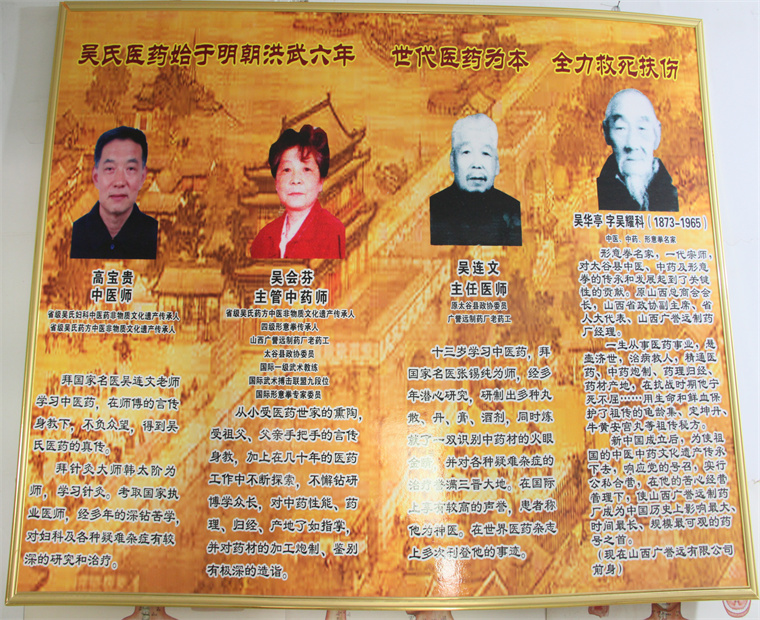 吴氏医药始于明朝洪武六年 世代医药为本 全力救死扶伤
高宝贵
中医师
省级吴氏妇科中医药非物质文化遗产传承人
省级吴氏药方中医非物质文化遗产传承人
拜国家名医吴连文老师
学习中医药，在师傅的言传
身教下，不负众望，得到吴
氏医药的真传。
拜针灸大师韩太阶为
师，学习针灸。考取国家执
业医师，经多年的深钻苦学，
对妇科及各种疑难杂症有较
深的研究和治疗。
吴会芬
主管中药师
省级吴氏药方中医非物质文化遗产传承人
四级形意拳传承人
山西广誉远制药厂老药工
太谷县政协委员
国际一级武术教练
国际武术搏击联盟九段位
国际形意拳专家委员
从小受医药世家的熏陶，
受祖父、父亲手把手的言传
身教，加上在几十年的医药
工作中不断探索，不懈钻研
博学众长，对中药性能、药
理、归经、产地了如指掌，
并对药材的加工炮制、鉴别
有极深的造诣。
吴连文
主任医师
原太谷县政协委员
广誉远制药厂老药工
十三岁学习中医药，拜
国家名医张锡纯为师，经多
年潜心研究，研制出多种丸
散、丹、膏、酒剂，同时炼
就了一双识别中药材的火眼
金睛，并对各种疑难杂症的
治疗誉满三晋大地。在国际
上享有较高的声誉，患者称
他为神医。在世界医药杂志
上多次刊登他的事迹。
吴华亭 字吴耀科（1873-1965）
中医、中药、形意拳名家
形意拳名家，一代宗师，
对太谷县中医、中药及形意
拳的传承和发展起到了关键
性的贡献。原山西总商会会
长，山西省政协副主席、省
人大代表、山西广誉远制药
厂经理。
一生从事医药事业，悬
壶济世，治病救人，精通医
药、中药炮制、药理归经、
药材产地，在抗战时期他宁
死不屈……用生命和鲜血保
护了祖传的龟龄集、定坤丹、
牛黄安宫丸等祖传秘方。
新中国成立后，为使祖
国的中医中药文化遗产传承
下去，响应党的号召，实行
公私合营，在他的苦心经营
管理下，使山西广誉远制药
厂成为中国历史上影响最大、
时间最长、规模最可观的药
号之首。
（现在山西广誉远有限公司
前身）